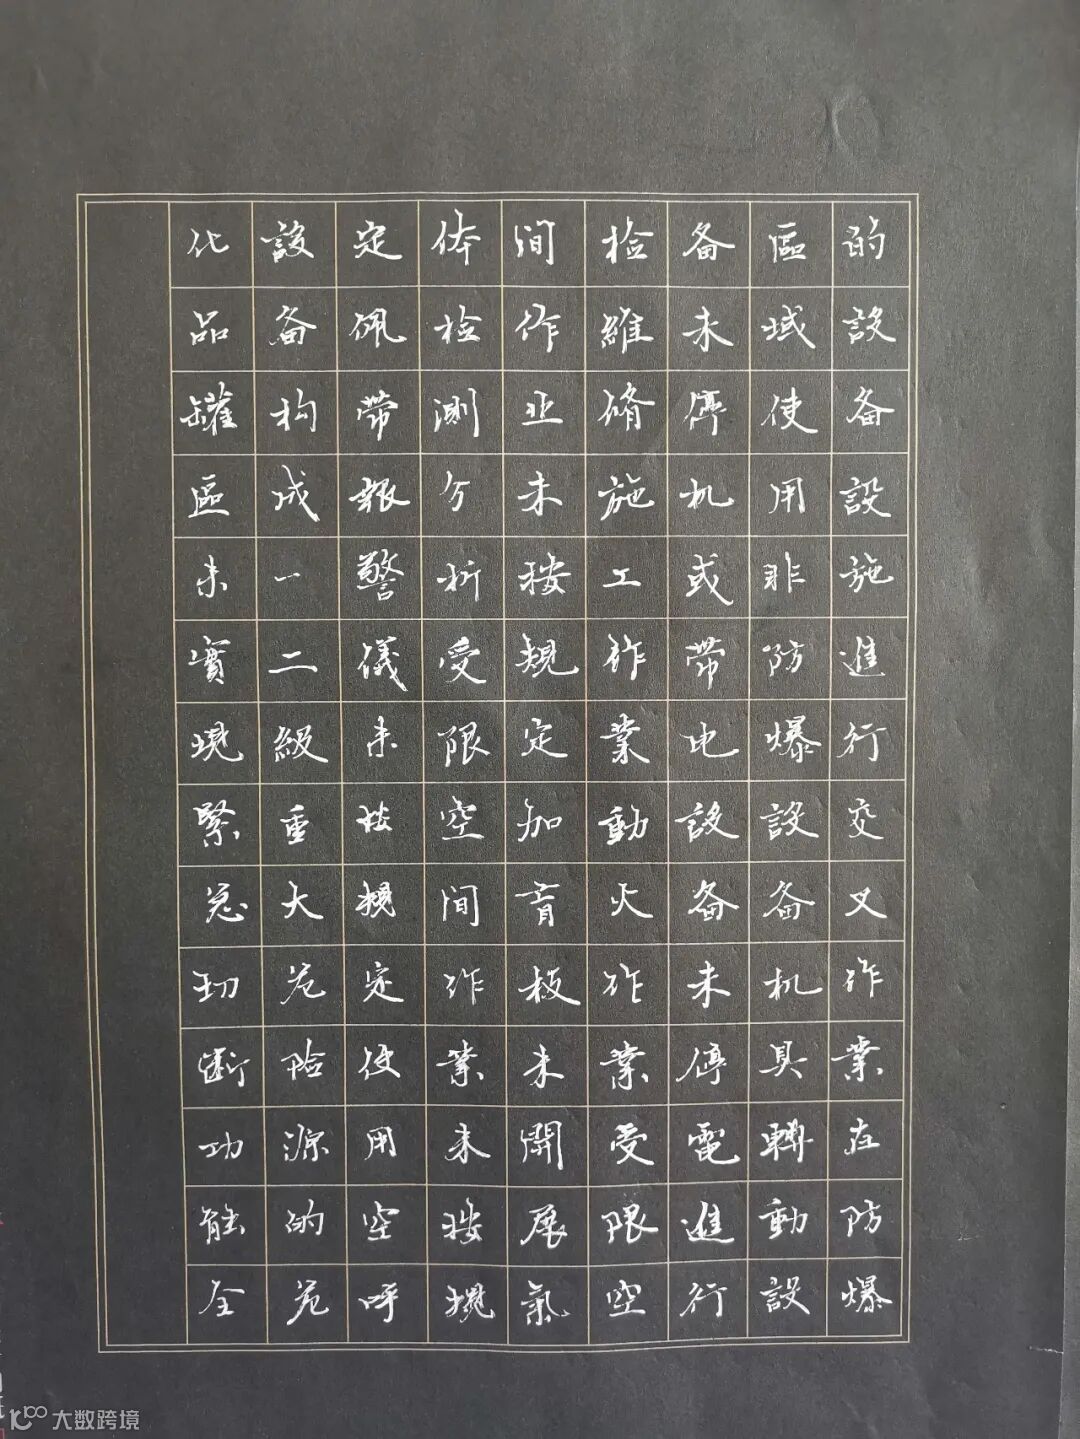 的設备設施進行交叉作業在防爆
區域使用非防爆設备机具轉動設
备未停机或带电設备未停電進行
检維脩施工作業動火作業受限空
间作业未按規定加盲板未開展氣
体检測分析受限空间作業未按規
定佩带報警儀未按規定使用空呼
設备构成一二級重大危险源的危
化品罐區未實現緊急切断功能全
大数跨境